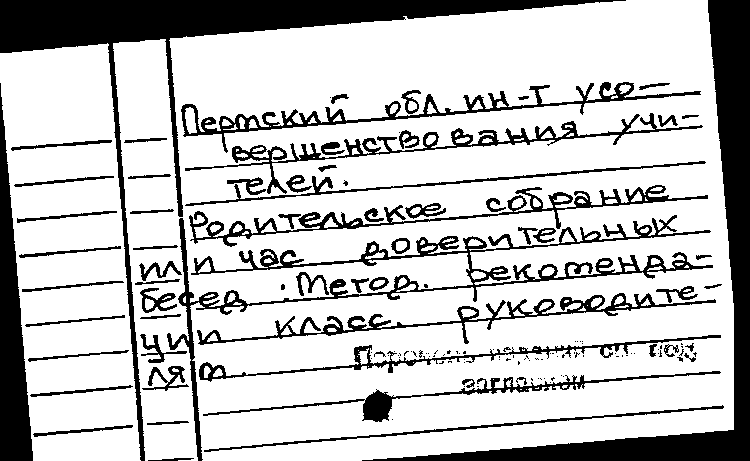 Пермский обл. ин-т усо-
вершенствования учи-
телей.
Родительское собрание
или час доверительных
бесед : Метод. рекоменда-
ции класс. руководите-
лям.
Перечень изданий см. под
заглавием